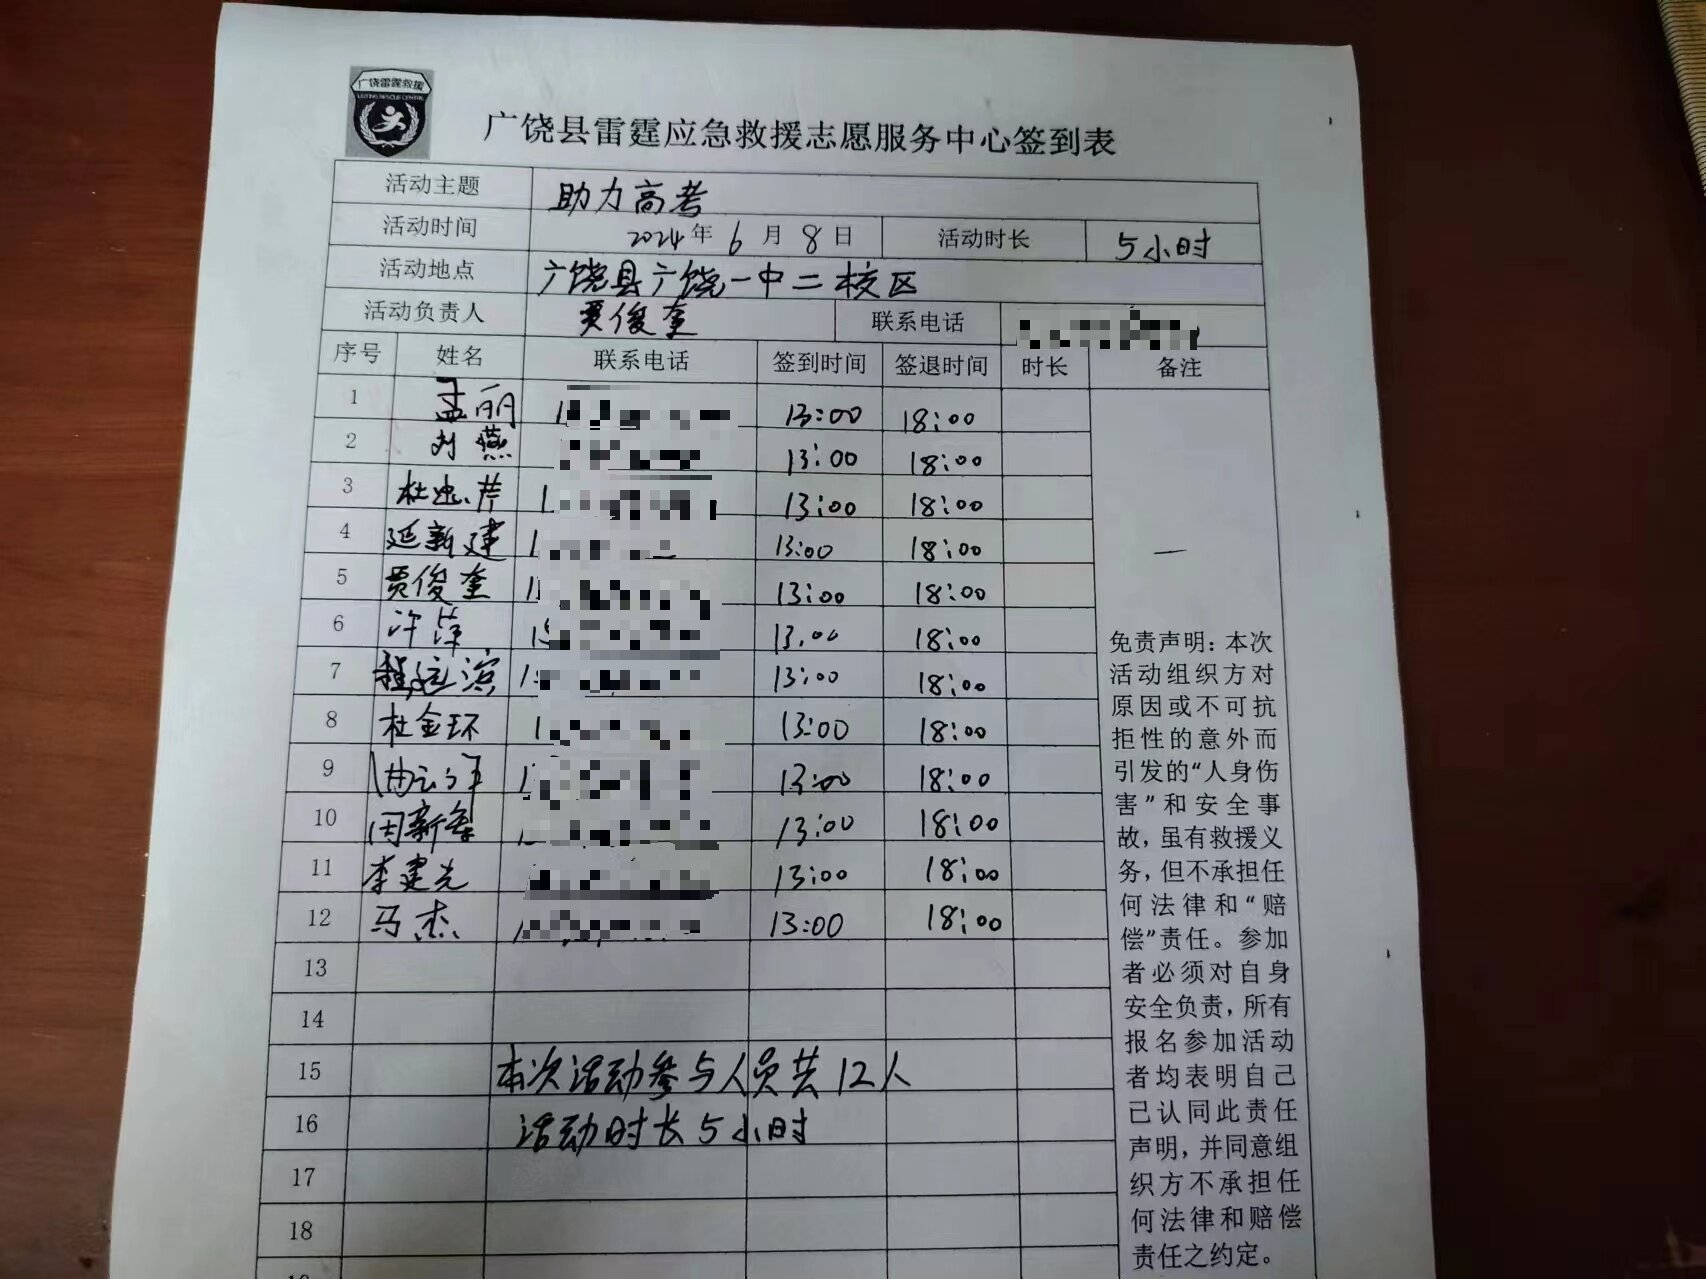 广饶雷霆救援
广饶县雷霆应急救援志愿服务中心签到表
活动主题 助力高考
活动时间 2024年6月8日 活动时长 5小时
活动地点 广饶县广饶一中二校区
活动负责人 贾俊奎 联系电话
序号 姓名 联系电话 签到时间 签退时间 时长 备注
1 孟丽 13:00 18:00
2 刘燕 13:00 18:00
3 杜忠芹 13:00 18:00
4 延新建 13:00 18:00
5 贾俊奎 13:00 18:00
6 许萍 13:00 18:00
7 程运滨 13:00 18:00
8 杜金环 13:00 18:00
9 13:00 18:00
10 13:00 18:00
11 李建光 13:00 18:00
12 马杰 13:00 18:00
13
14
15 本次活动参与人员共12人
16 活动时长5小时
17
18
免责声明：本次
活动组织方对
原因或不可抗
拒性的意外而
引发的“人身伤
害”和安全事
故，虽有救援义
务，但不承担任
何法律和“赔
偿”责任。参加
者必须对自身
安全负责，所有
报名参加活动
者均表明自己
已认同此责任
声明，并同意组
织方不承担任
何法律和赔偿
责任之约定。